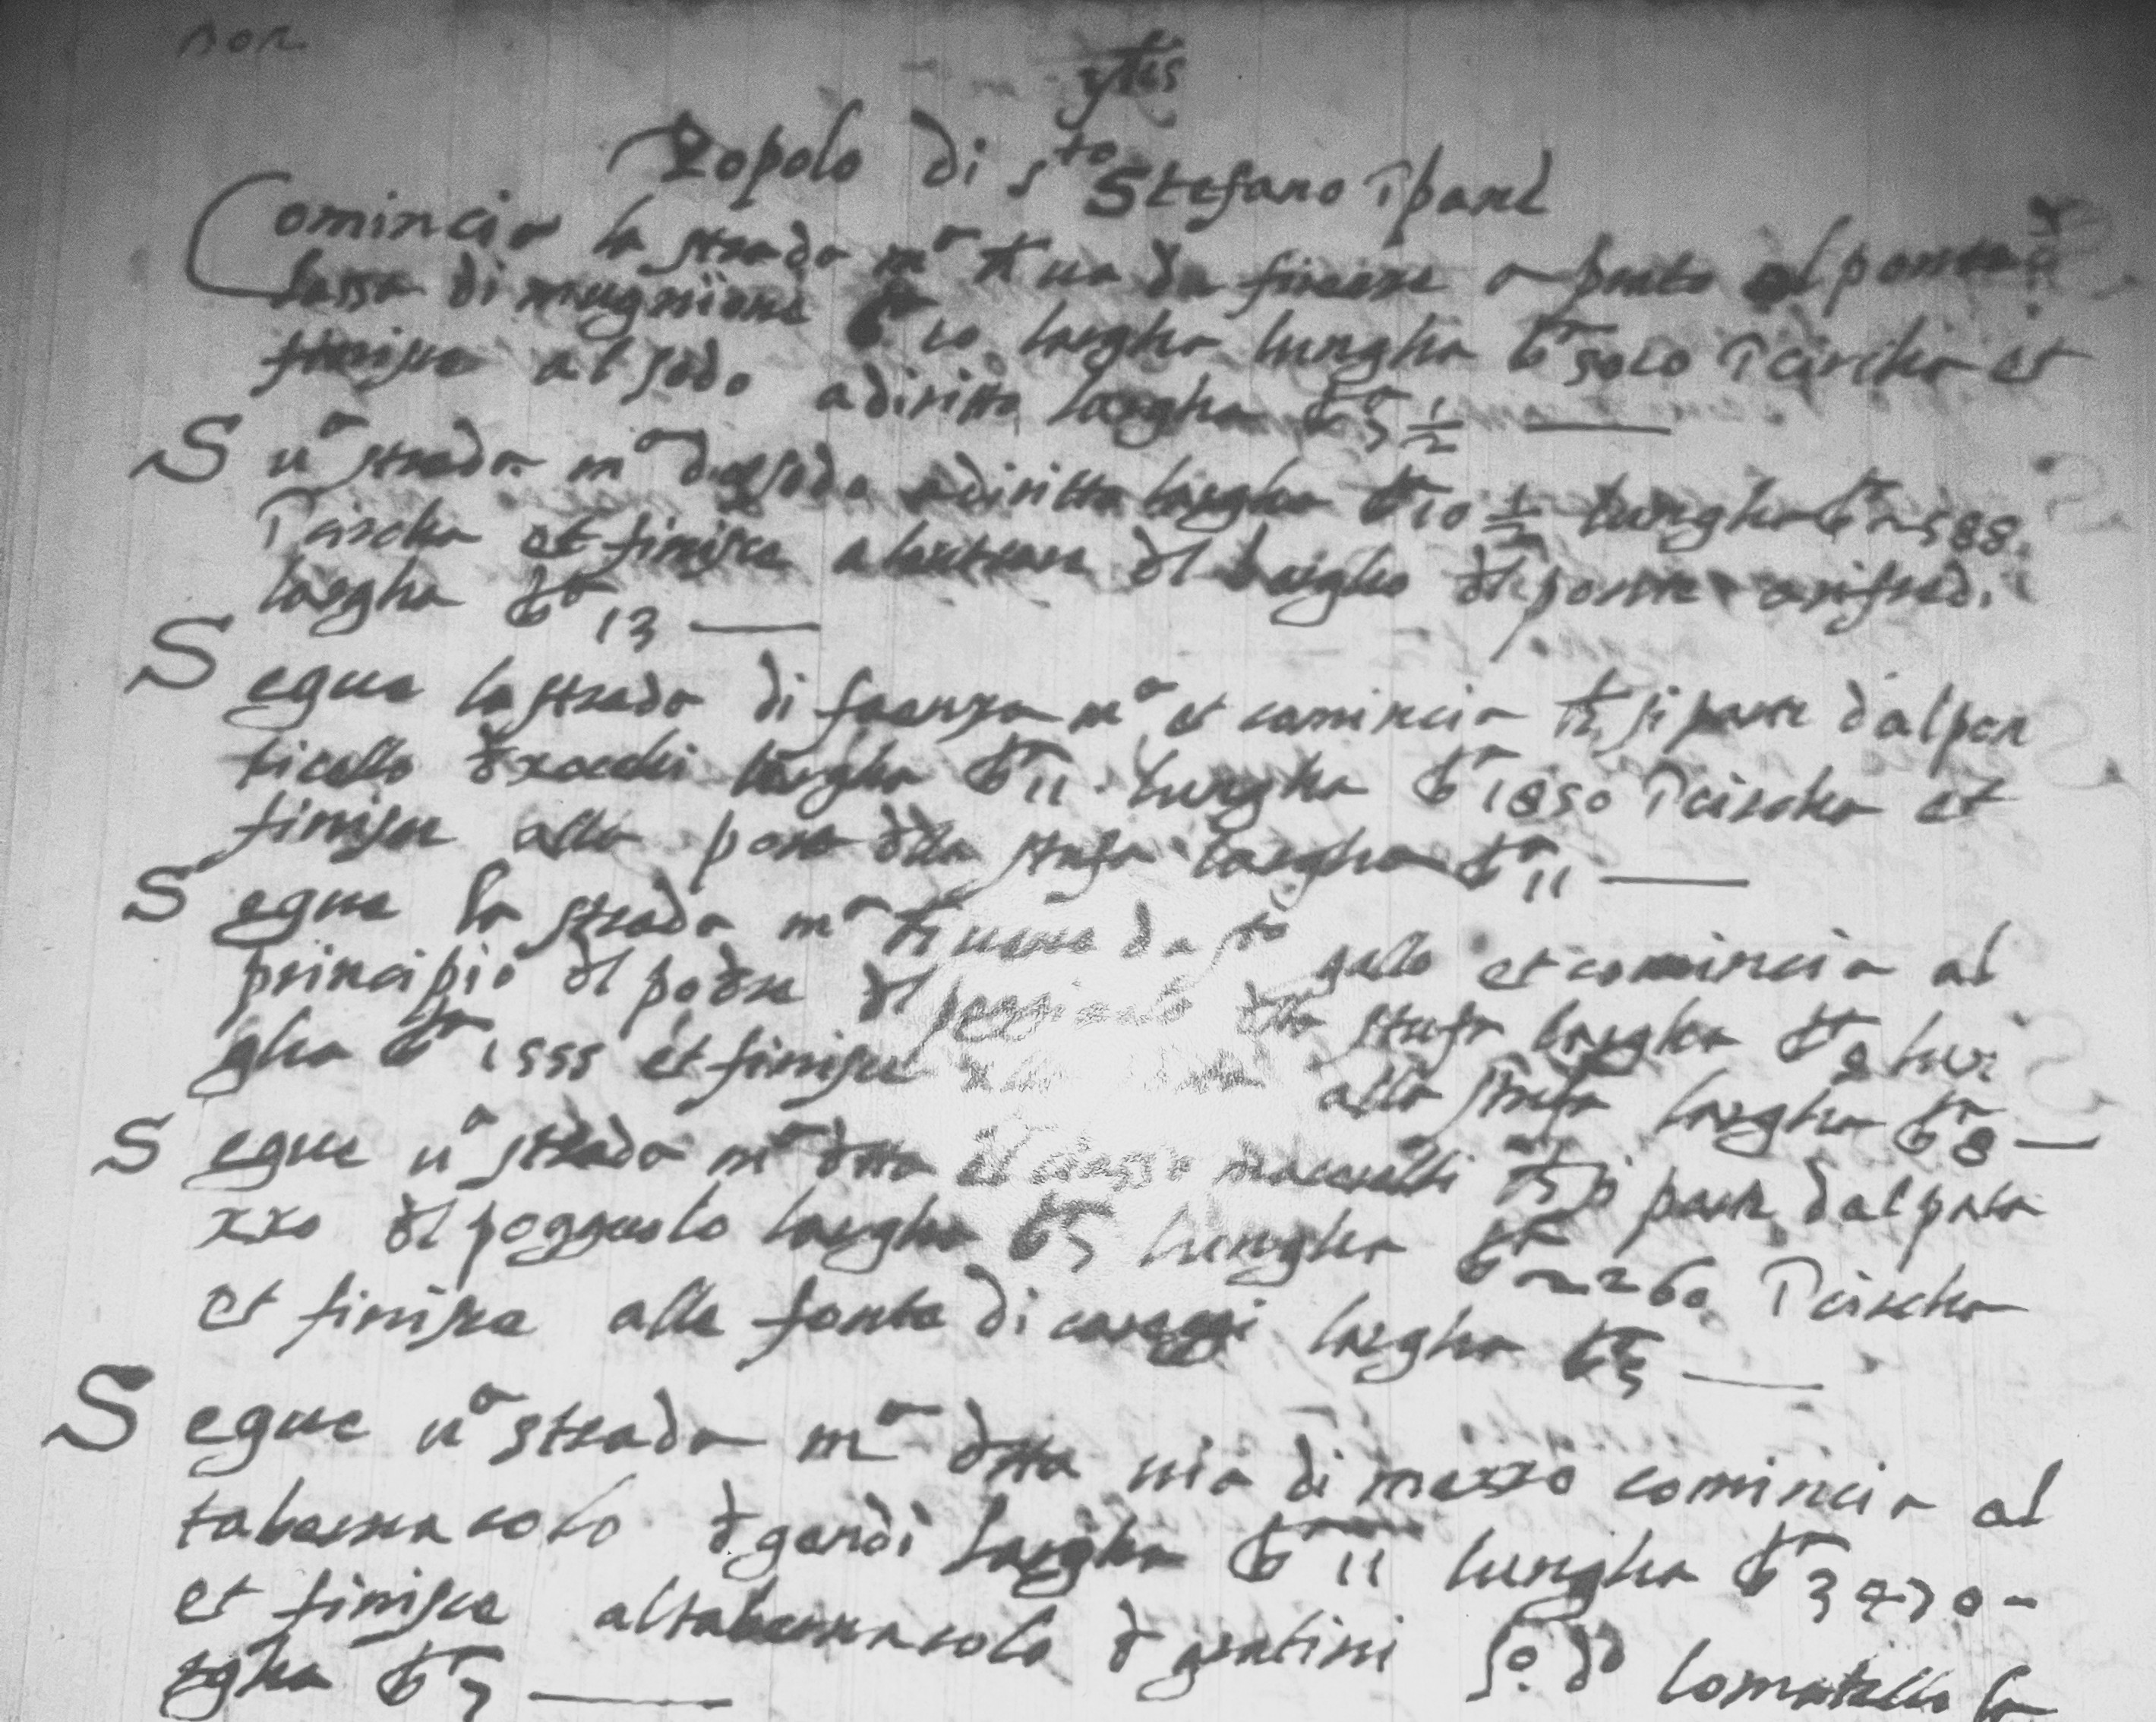 yhs
Popolo di sto Stefano ī pane
Comincia la strada ma ch ua da firenze a prato al ponte a
lassa di mugnione ba 10 largha lungha ba 5010 ī circha et
finisce al sodo adiritto largha ba 5 1/2
S ua strada ma dal sodo adiritta largha ba 10 1/2 lungha ba 2588
ī circha et finisce alentrare dl borgho dl ponte arifredi
largha ba 13
Segue la strada di faenza ma et comincia ch si parte dal pon
ticello largha ba 11 lungha ba 1850 ī circha et
finisce alla porta dlla stufa largha ba 11
Segue la strada ma ch uiene da sto gallo et comincia al
principio dl podere dl dlla stufa largha ba 8 lun
gha ba 1555 et finisce alla stufa largha ba 8
Segue ua strada ma dtta il chiasso macerelli ch si parte dal pala
zzo dl pogguolo largha ba 5 lungha ba 2260 ī circha
et finisce alla fonte di careggi largha ba 5
Segue ua strada ma dtta uia di mezzo comincia al
tabernacolo d gondi largha ba 11 lungha ba 3970
et finisce al tabernacolo d lomatello la
rgha ba 7